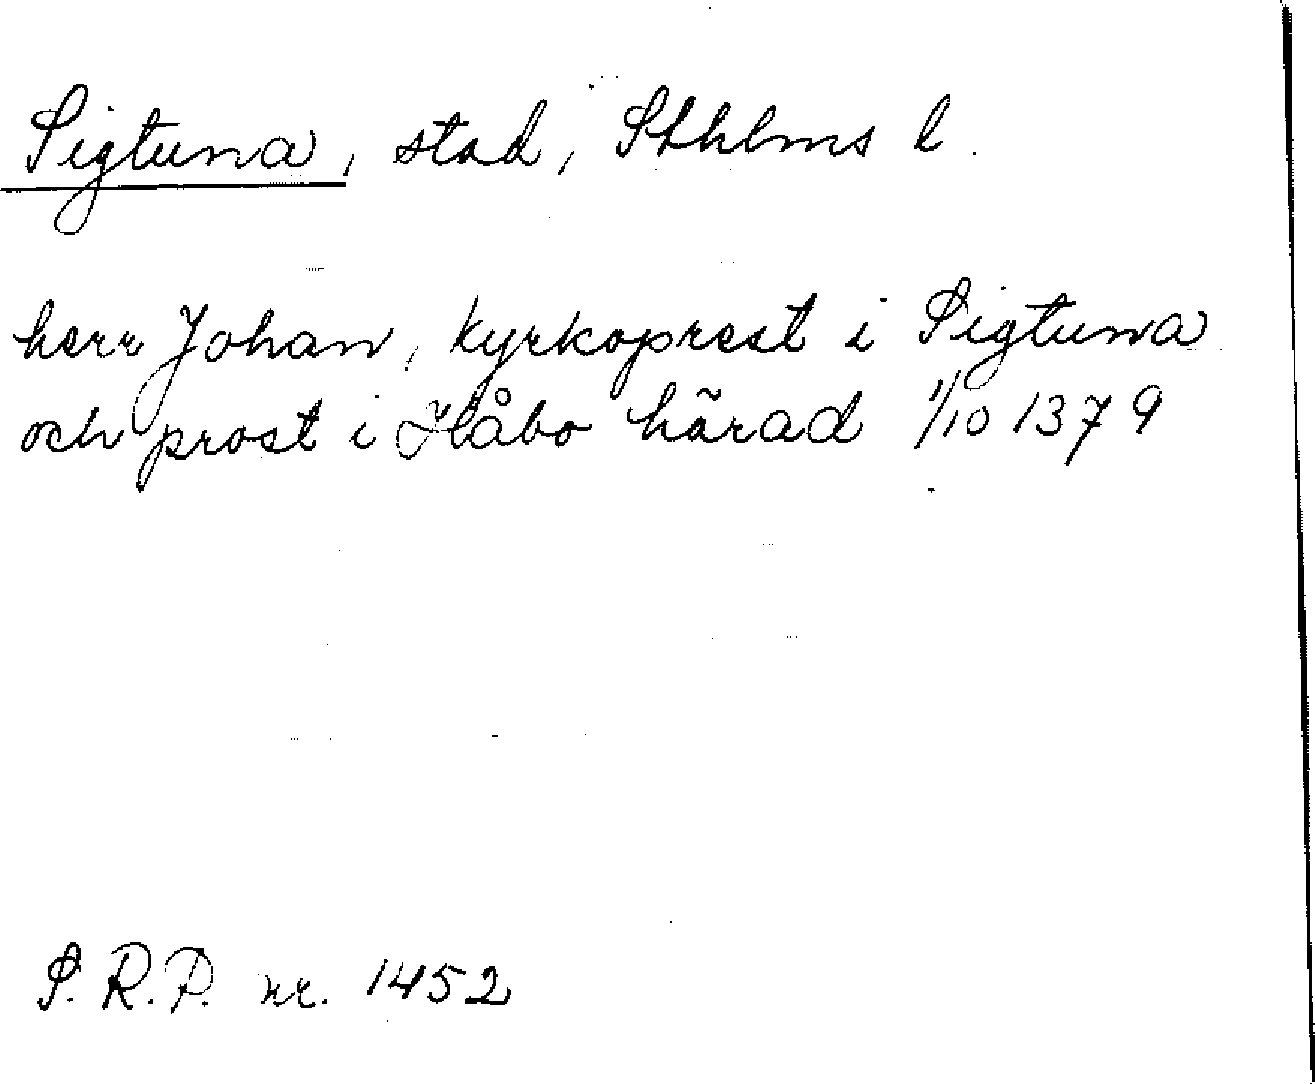 Sigtuna, stad, Sthlms l.
herr Johan, kyrkoprest i Sigtuna
och prost i Håbo härad 1/10 1379
S.R.P. nr. 1452